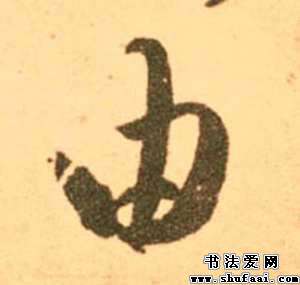 由
书法爱网
www.shufaai.com